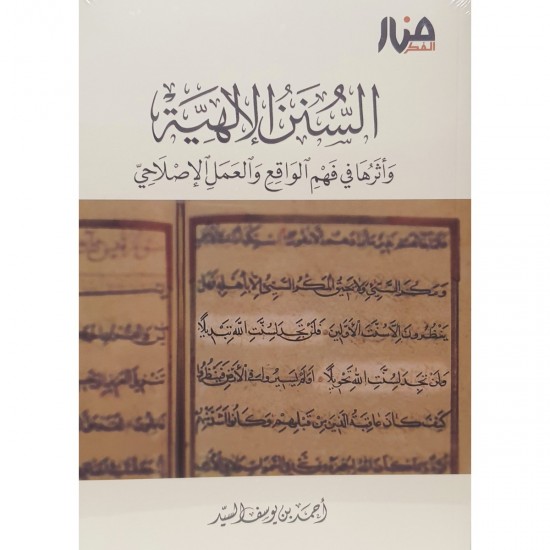 منار
الفكر
السُّنَنُ الإِلَهِيَّة
وَأَثَرُهَا فِي فَهْمِ الوَاقِعِ وَالعَمَلِ الإِصْلَاحِيِّ
ومكر السيئ ولا يحيق المكر السيئ إلا بأهله فهل
ينظرون إلا سنت الأولين فلن تجد لسنت الله تبديلا
ولن تجد لسنت الله تحويلا أولم يسيروا في الأرض فينظروا
كيف كان عاقبة الذين من قبلهم وكانوا أشد منهم
أحمد بن يوسف السيّد